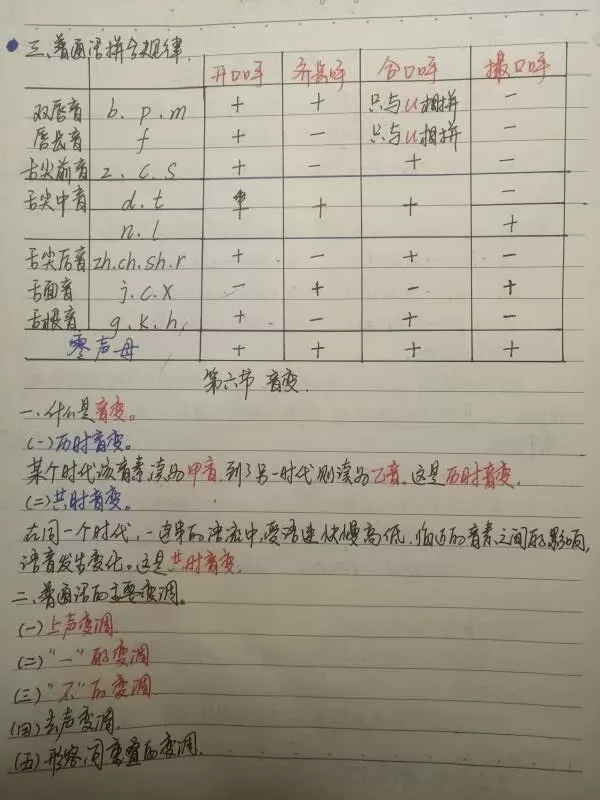 三、普通话拼合规律.
开口呼 齐齿呼 合口呼 撮口呼
双唇音 b. p. m + + 只与u相拼 -
唇齿音 f + - 只与u相拼 -
舌尖前音 z. c. s + - + -
舌尖中音 d. t + + + -
n. l +
舌尖后音 zh.ch.sh.r + - + -
舌面音 j. c. x - + - +
舌根音 g. k. h, + - + -
零声母 + + + +
第六节 音变.
一、什么是音变。
(一)历时音变。
某个时代该音素读为甲音,到了另一时代则读为乙音。这是历时音变.
(二)共时音变。
在同一个时代,一连串的语流中,受语速快慢高低,临近的音素之间的影响,
语音发生变化。这是共时音变.
二、普通话的主要变调。
(一)上声变调.
(二)"一"的变调
(三)"不"的变调
(四)去声变调.
(五)形容词重叠的变调.